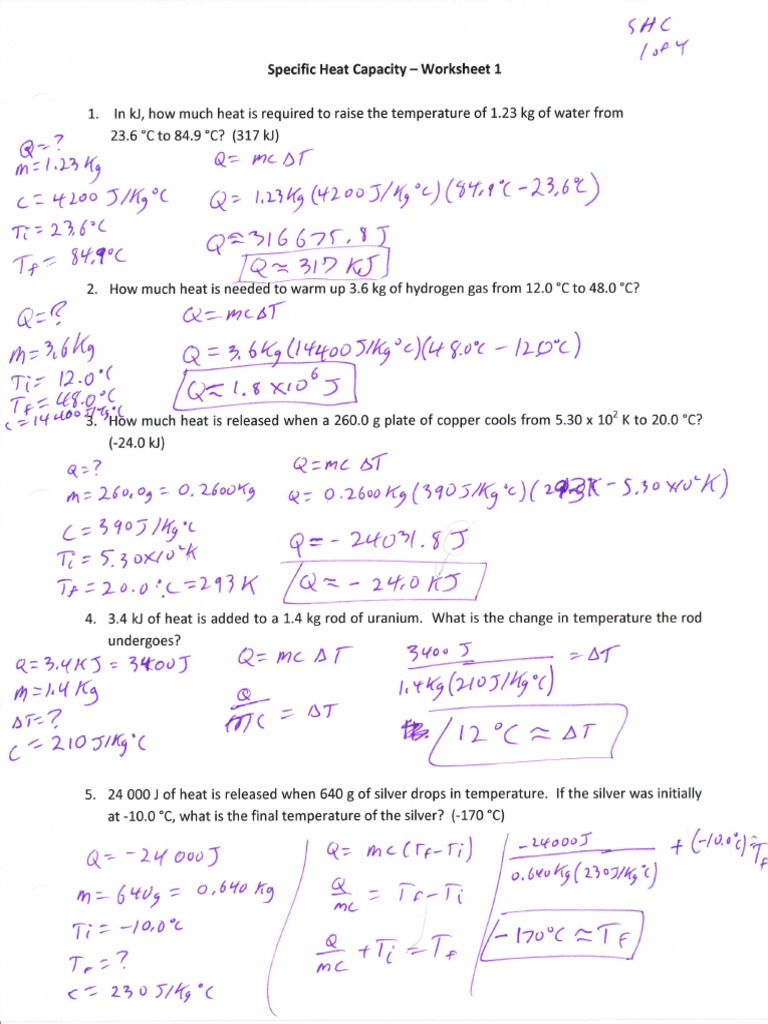 SHC
1 of 4
Specific Heat Capacity – Worksheet 1
1. In kJ, how much heat is required to raise the temperature of 1.23 kg of water from
23.6 °C to 84.9 °C? (317 kJ)
Q=?
m=1.23 Kg
c = 4200 J/Kg°C
Ti = 23.6°C
Tf = 84.9°C
Q= mcΔT
Q= 1.23Kg(4200J/Kg°C)(84.9°C-23.6°C)
Q≈316675.8J
Q≈ 317 KJ
2. How much heat is needed to warm up 3.6 kg of hydrogen gas from 12.0 °C to 48.0 °C?
Q=?
m=3.6Kg
Ti= 12.0°C
Tf = 48.0°C
c=14400J/Kg°C
Q=mcΔT
Q = 3.6Kg(14400J/Kg°C)(48.0°C - 12.0°C)
Q≈ 1.8 x10⁶ J
3. How much heat is released when a 260.0 g plate of copper cools from 5.30 x 10² K to 20.0 °C?
(-24.0 kJ)
Q=?
m= 260.0g = 0.2600Kg
c = 390J/Kg°C
Ti= 5.30x10²K
Tf= 20.0°C=293K
Q=mc ΔT
Q= 0.2600Kg(390J/Kg°C)(293K - 5.30x10²K)
Q=- 24031.8J
Q≈ - 24.0 KJ
4. 3.4 kJ of heat is added to a 1.4 kg rod of uranium. What is the change in temperature the rod
undergoes?
Q=3.4KJ = 3400J
m=1.4 Kg
ΔT=?
c = 210J/Kg°C
Q=mc ΔT
Q
mc = ΔT
3400 J = ΔT
1.4Kg(210J/Kg°C)
12°C ≈ ΔT
5. 24 000 J of heat is released when 640 g of silver drops in temperature. If the silver was initially
at -10.0 °C, what is the final temperature of the silver? (-170 °C)
Q= -24 000J
m= 640g = 0.640 Kg
Ti = -10.0°C
Tf = ?
c= 230J/Kg°C
Q= mc(Tf-Ti)
Q
mc = Tf-Ti
Q
mc +Ti=Tf
-24000J + (-10.0°C) = Tf
0.640Kg(230J/Kg°C)
-170°C ≈ Tf